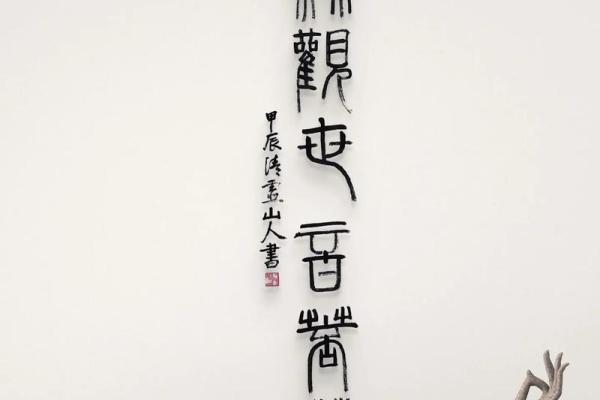 觀世音菩
甲辰清山人書